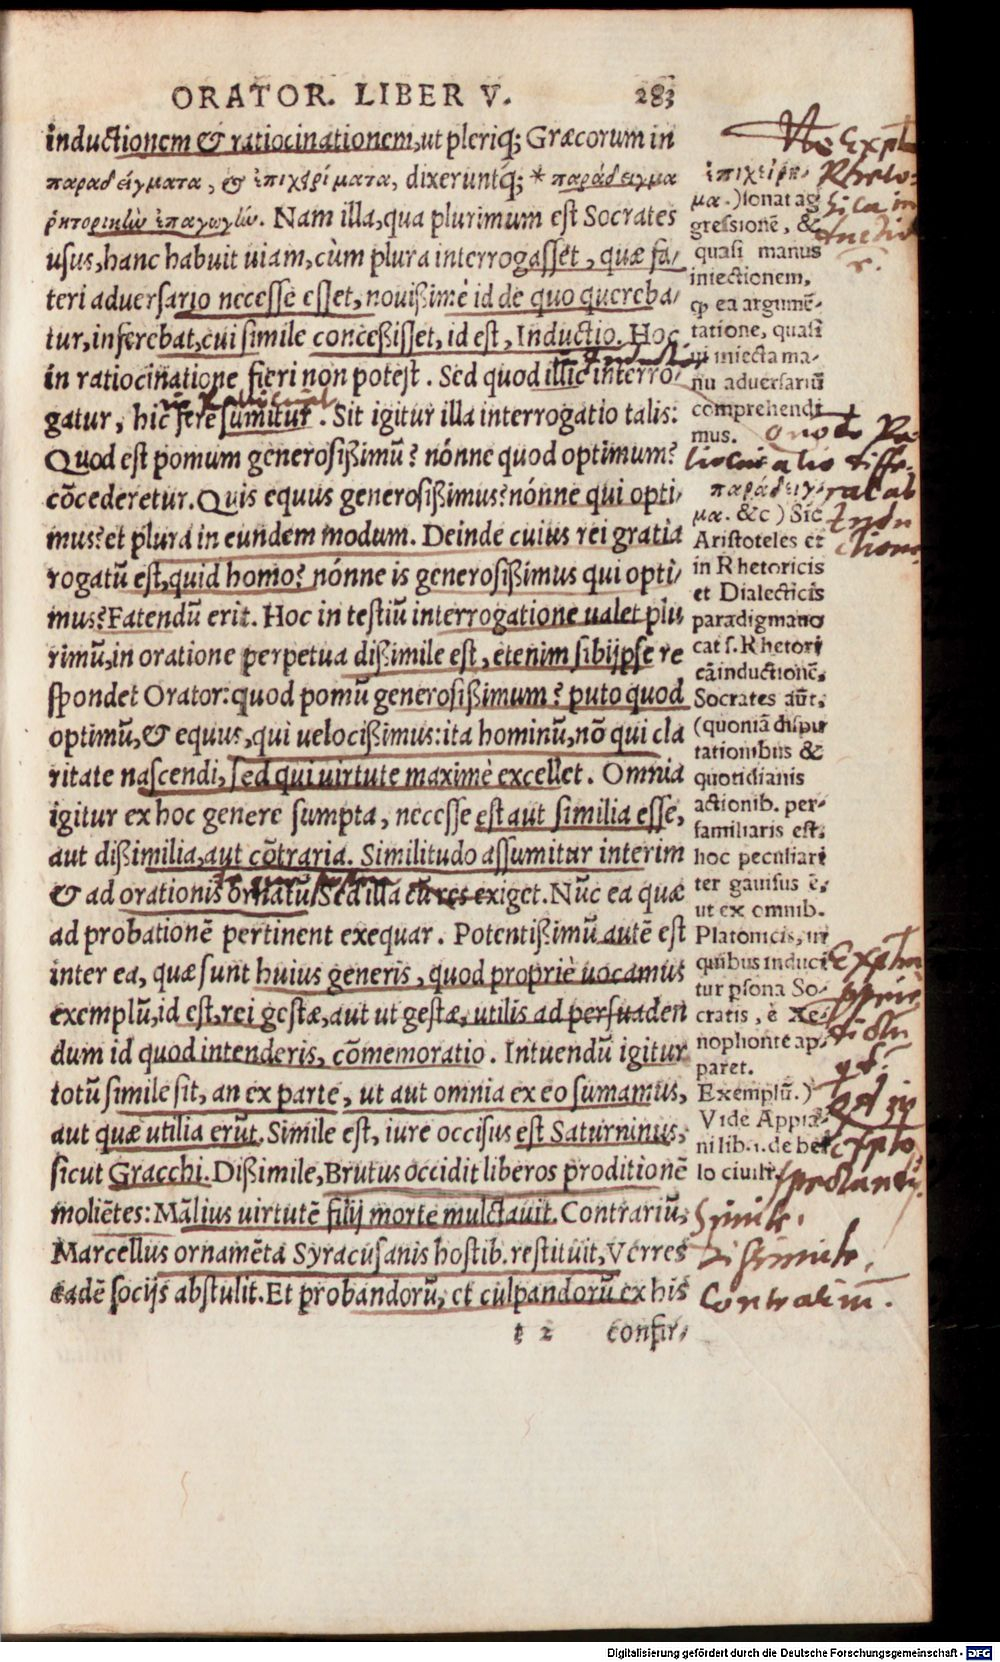 ORATOR. LIBER V. 283
inductionem & ratiocinationem, ut pleriq; Græcorum in
παραδείγματα, & ἐπιχειρήματα, dixeruntq́; * παράδειγμα
ῥητορικὴν ἐπαγωγήν. Nam illa, qua plurimum est Socrates
usus, hanc habuit uiam, cùm plura interrogasset, quæ fa-
teri aduersario necesse esset, nouißimè id de quo quereba-
tur, inferebat, cui simile conceßisset, id est, Inductio. Hoc
in ratiocinatione fieri non potest. Sed quod illic interro-
gatur, hic ferè sumitur. Sit igitur illa interrogatio talis:
Quod est pomum generosißimũ? nónne quod optimum?
cõcederetur. Quis equus generosißimus? nónne qui opti-
mus? et plura in eundem modum. Deinde cuius rei gratia
rogatũ est, quid homo? nónne is generosißimus qui opti-
mus? Fatendũ erit. Hoc in testiũ interrogatione ualet plu
rimũ, in oratione perpetua dißimile est, etenim sibijpse re
spondet Orator: quod pomũ generosißimum? puto quod
optimũ, & equus, qui uelocißimus: ita hominũ, nõ qui cla
ritate nascendi, sed qui uirtute maximè excellet. Omnia
igitur ex hoc genere sumpta, necesse est aut similia esse,
aut dißimilia, aut cõtraria. Similitudo assumitur interim
& ad orationis ornatũ, Sed illa cũ res exiget. Nũc ea quæ
ad probationẽ pertinent exequar. Potentißimũ autẽ est
inter ea, quæ sunt huius generis, quod propriè uocamus
exemplũ, id est, rei gestæ, aut ut gestæ, utilis ad persuaden
dum id quod intenderis, cõmemoratio. Intuendũ igitur
totũ simile sit, an ex parte, ut aut omnia ex eo sumamus,
aut quæ utilia erũt. Simile est, iure occisus est Saturninus,
sicut Gracchi. Dißimile, Brutus occidit liberos proditionẽ
moliẽtes: Mãlius uirtutẽ filij morte mulctauit. Contrariũ,
Marcellus ornamẽta Syracusanis hostib. restituit, Verres
eadẽ socijs abstulit. Et probandorũ, et culpandorũ ex his
t 2 confir-
ἐπιχείρη-
μα.) sonat ag
gressionẽ, &
quasi manus
iniectionem,
ꝙ ea argumẽ-
tatione, quasi
iniecta ma-
nu aduersariũ
comprehendi
mus.
παράδειγ-
μα. &c) Sic
Aristoteles et
in Rhetoricis
et Dialecticis
paradigma uo
cat s. Rhetori
cã inductionẽ,
Socrates aũt,
(quoniã dispu
tationibus &
quotidianis
actionib. per-
familiaris est,
hoc peculiari
ter gauisus ẽ,
ut ex omnib.
Platonicis, in
quibus induci
tur psona So-
cratis, & Xe-
nophonte ap-
paret.
Exemplũ.)
Vide Appia-
ni lib. 1. de bel
lo ciuili
Simile.
Dissimile.
Contrarium.